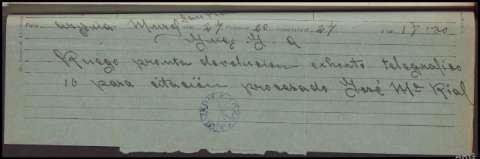 27 60 27 17'30
Juez Y. G
Ruego pronta devolucion exhorto telegrafico
10 para citación procesado José Mª Rial